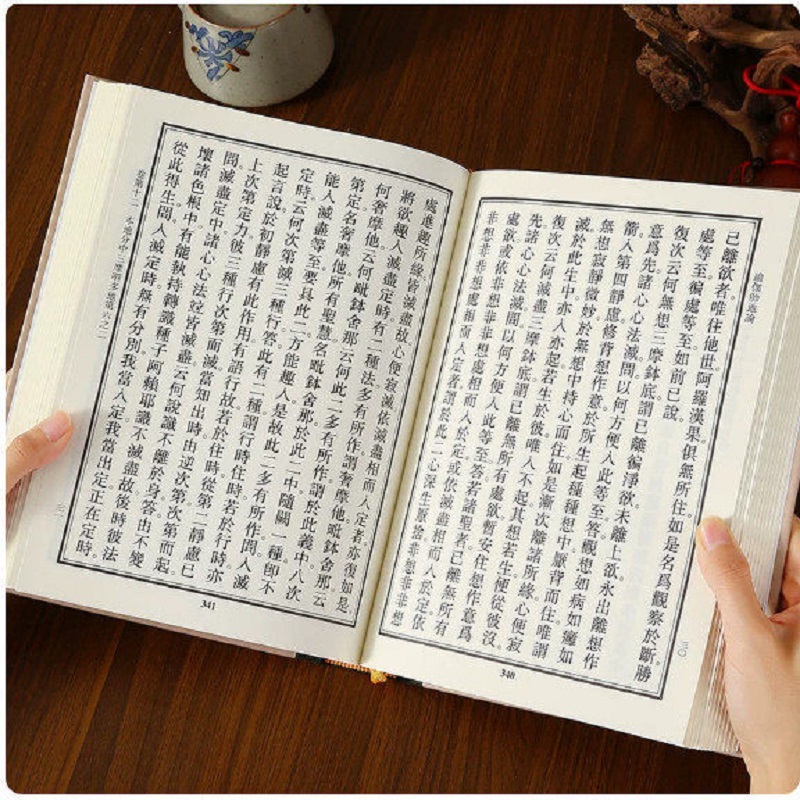 瑜伽師地論
已離欲者。唯住他世。阿羅漢果。俱無所住。如是名爲觀察於斷。勝
處等至。徧處等至。如前已說。
復次云何無想三摩鉢底。謂已離徧淨欲。未離上欲。永出離想作
意爲先。諸心心法滅。問。以何方便入此等至。答。觀想如病如癰如
箭。入第四靜慮。修背想作意。於所生起種種想中。厭背而住。唯謂
無想寂靜微妙。於無想中持心而住。如是漸次離諸所緣。心便寂
滅。於此生中亦入亦起。若生於彼唯入不起。其想若生便從彼沒。
復次云何滅盡三摩鉢底。謂已離無所有處欲。暫安住想作意爲
先。諸心心法滅。問。以何方便入此等至。答。若諸聖者已離無所有
處欲。或依非想非非想處相而入於定。或依滅盡相而入於定。依
非想非非想處相而入定者。謂於此二心深生厭捨。非想非非想
三〇
340
處進趣所緣皆滅盡故。心便寂滅。依滅盡相而入定者。亦復如是
將欲趣入滅盡定時。有二種法多有所作。謂奢摩他毗鉢舍那。云
何奢摩他。云何毗鉢舍那。云何此二多有所作。謂於此義中。八次
第定名奢摩他。所有聖慧名毗鉢舍那。於此二中。隨闕一種。即不
能入滅盡等至。要具此二。方能趣入。是故此二多有所作。問。入滅
定時。云何次第滅三種行。答。此有二種。謂行時住時。若於行時。亦
起言說。於初靜慮有此作用。有語行故。若於住時。從第二靜慮已
上。次第定力。彼三種行次第而滅。當知出時。由逆次第。次第而起。
問。滅盡定中。諸心心法並皆滅盡。云何說識不離於身。答。由不變
壞諸色根中。有能執持轉識種子阿賴耶識不滅盡故。後時彼法
從此得生。問。入滅定時。無有分別。我當入定。我當出定。正在定時。
卷第十二　本地分中三摩呬多地第六之二
三一
341